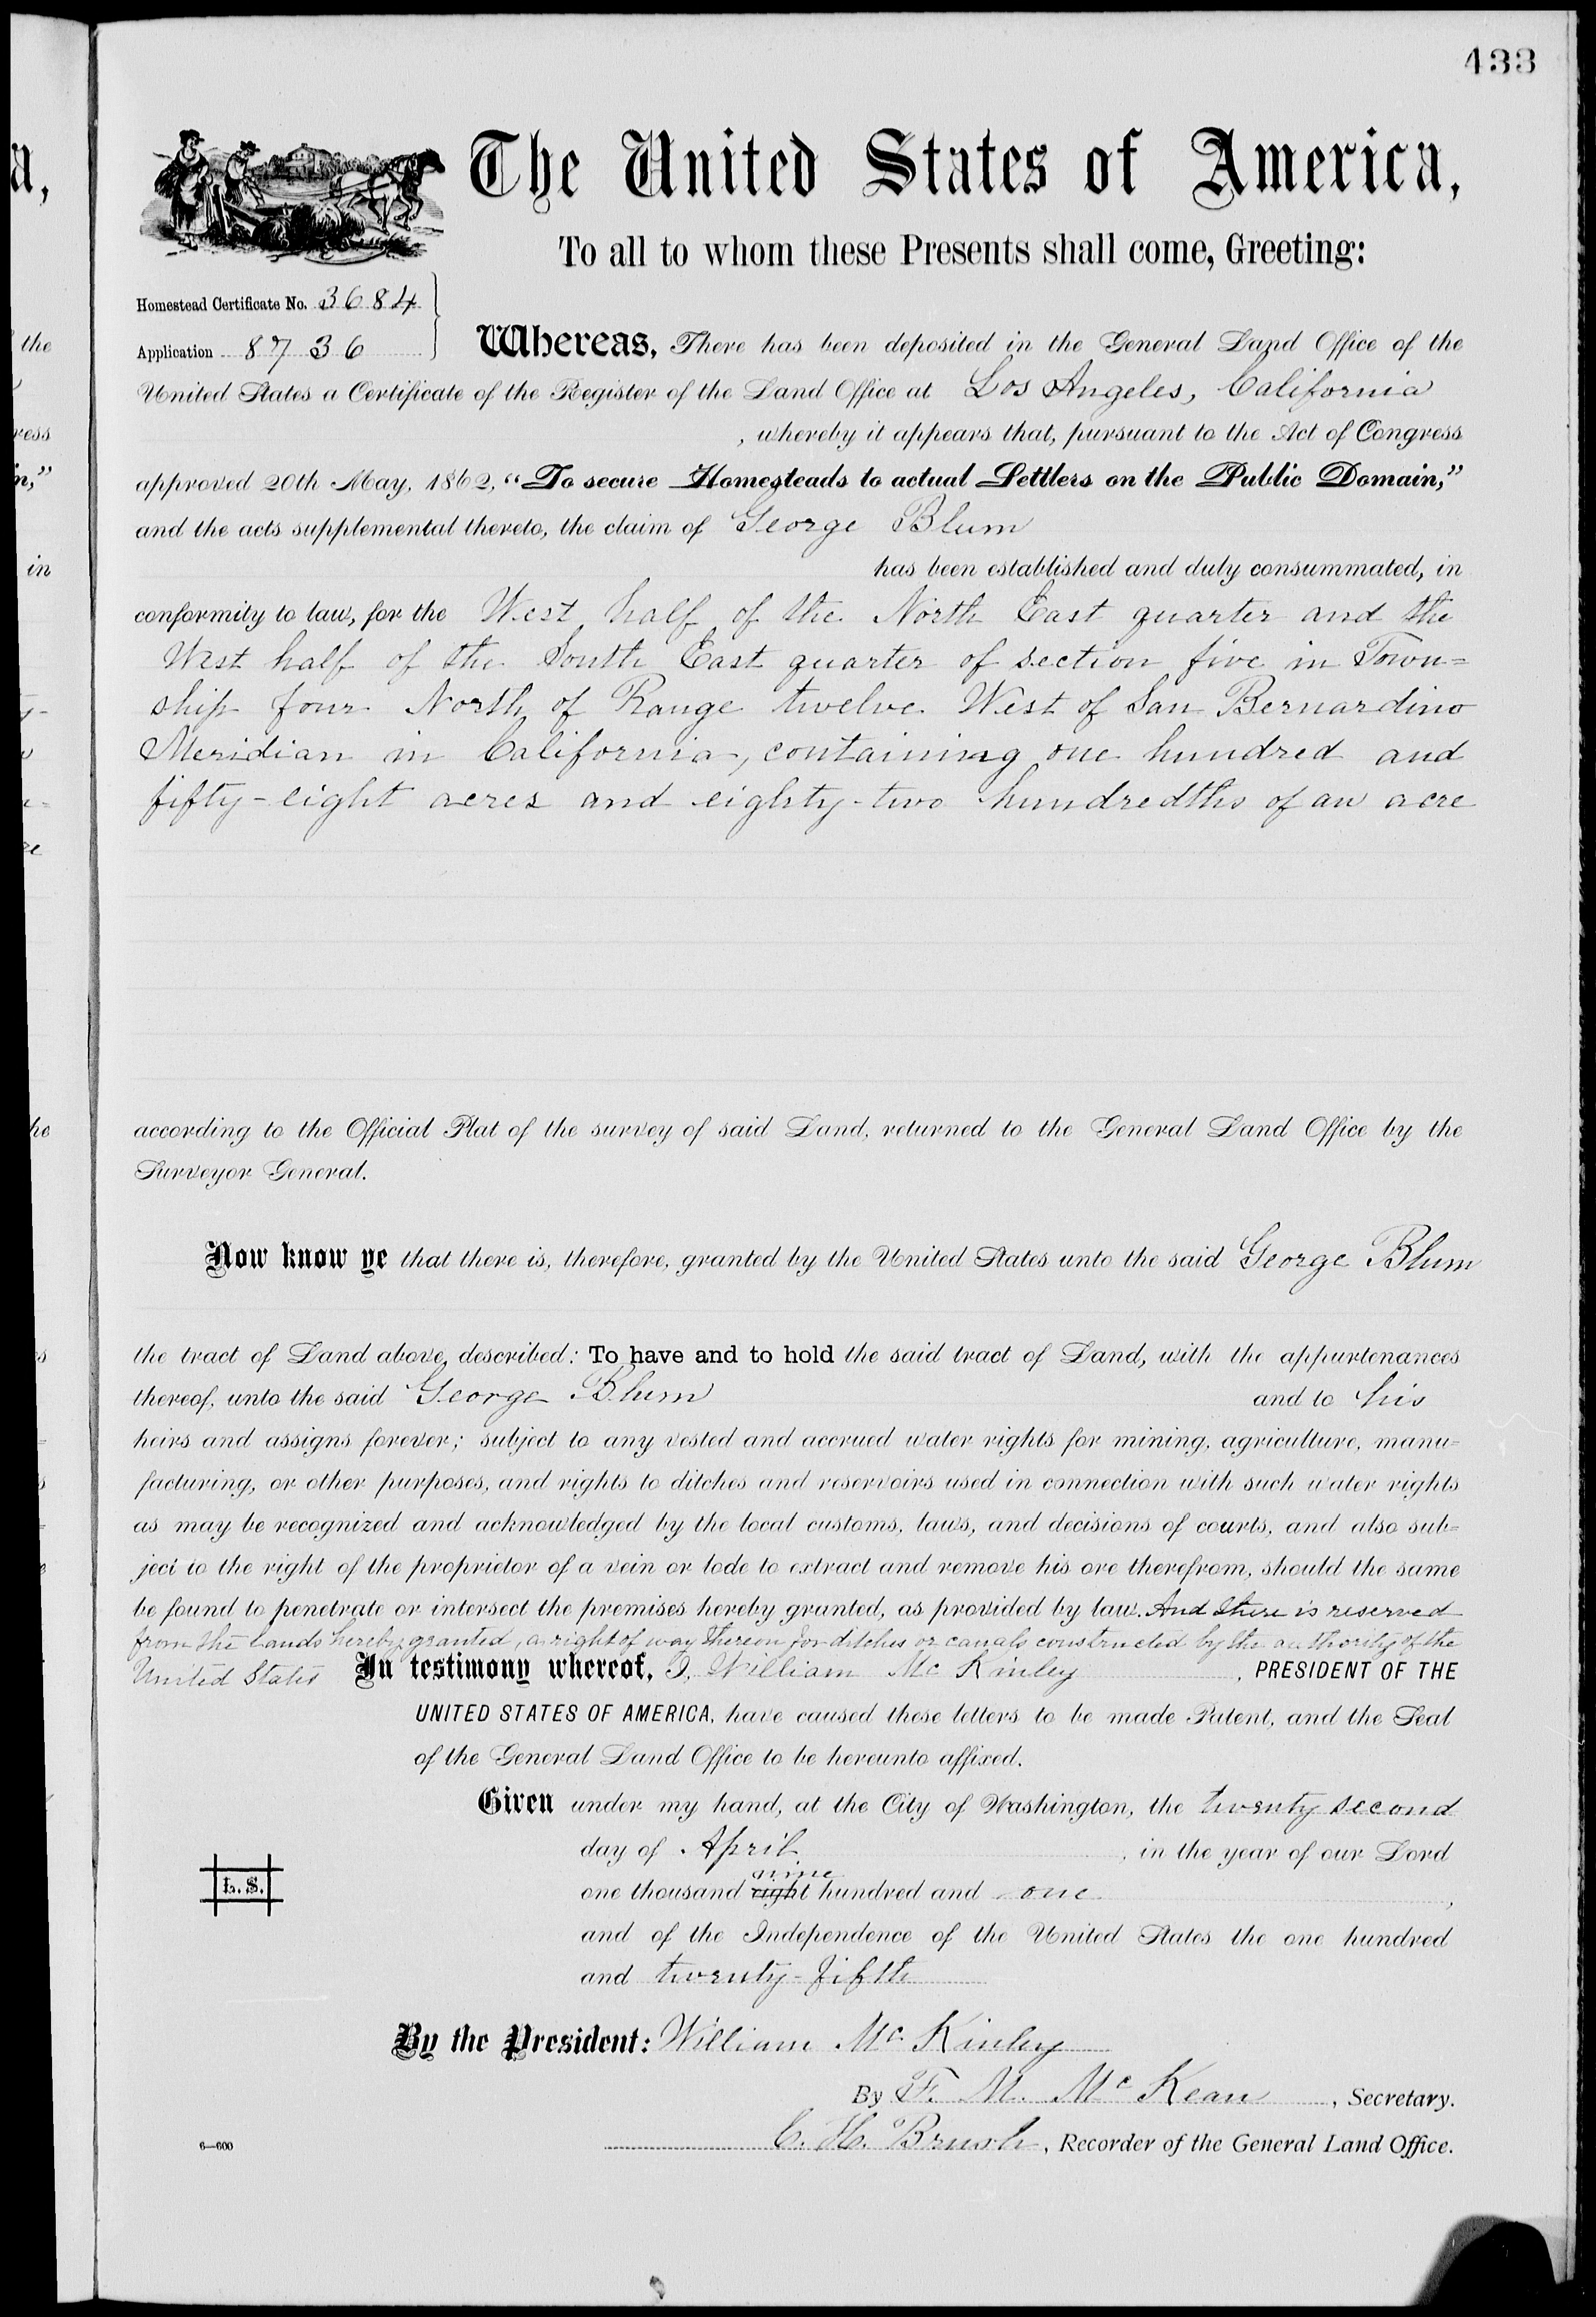 433
The United States of America,
To all to whom these Presents shall come, Greeting:
Homestead Certificate No. 3684
Application 8736
Whereas, There has been deposited in the General Land Office of the
United States a Certificate of the Register of the Land Office at Los Angeles, California
, whereby it appears that, pursuant to the Act of Congress
approved 20th May, 1862, “To secure Homesteads to actual Settlers on the Public Domain,”
and the acts supplemental thereto, the claim of George Blum
has been established and duly consummated, in
conformity to law, for the West half of the North East quarter and the
West half of the South East quarter of section five in Town=
ship four North of Range twelve West of San Bernardino
Meridian in California, containing one hundred and
fifty-eight acres and eighty-two hundredths of an acre
according to the Official Plat of the survey of said Land, returned to the General Land Office by the
Surveyor General.
Now know ye that there is, therefore, granted by the United States unto the said George Blum
the tract of Land above described: To have and to hold the said tract of Land, with the appurtenances
thereof, unto the said George Blum and to his
heirs and assigns forever; subject to any vested and accrued water rights for mining, agriculture, manu=
facturing, or other purposes, and rights to ditches and reservoirs used in connection with such water rights
as may be recognized and acknowledged by the local customs, laws, and decisions of courts, and also sub=
ject to the right of the proprietor of a vein or lode to extract and remove his ore therefrom, should the same
be found to penetrate or intersect the premises hereby granted, as provided by law. And there is reserved
from the lands hereby granted, a right of way thereon for ditches or canals constructed by the authority of the
United States In testimony whereof, I, William McKinley, PRESIDENT OF THE
UNITED STATES OF AMERICA, have caused these letters to be made Patent, and the Seal
of the General Land Office to be hereunto affixed.
Given under my hand, at the City of Washington, the twenty second
day of April, in the year of our Lord
nine
one thousand eight hundred and one,
L. S.
and of the Independence of the United States the one hundred
and twenty-fifth
By the President: William McKinley
By F. M. McKean, Secretary.
C. H. Brush, Recorder of the General Land Office.
6—600